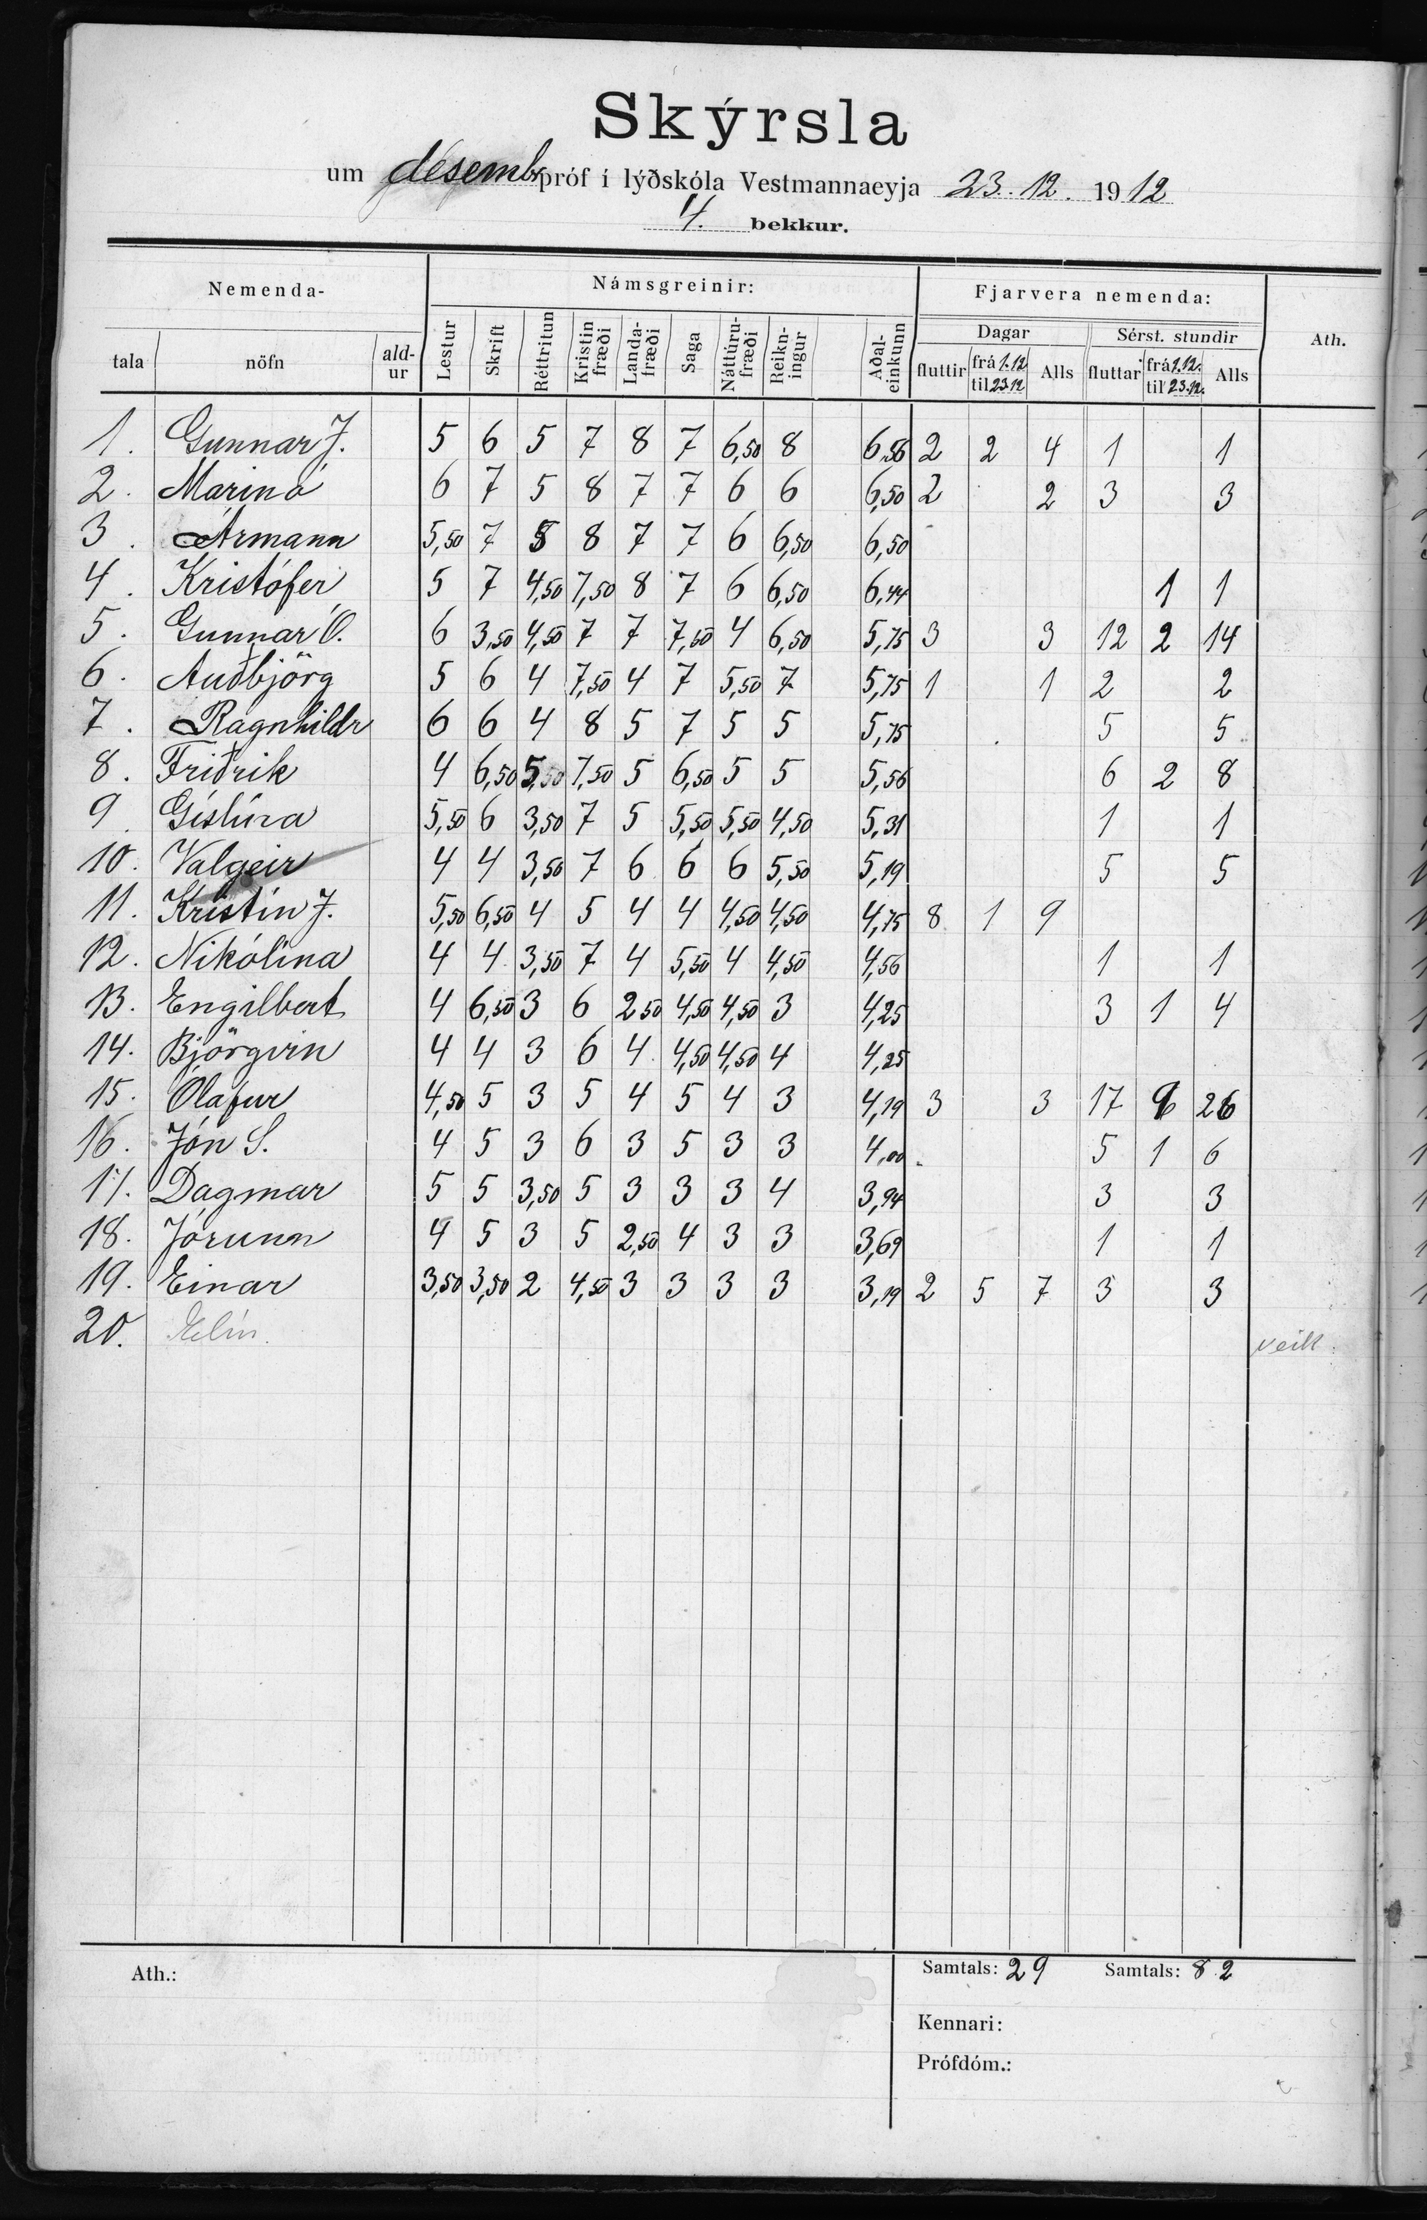 Skýrsla
um desembr próf í lýðskóla Vestmannaeyja 23. 12. 1912
4. bekkur.
Nemenda- Námsgreinir: Fjarvera nemenda: Ath.
Dagar Sérst. stundir
tala nöfn ald-ur Lestur Skrift Réttritun Kristin fræði Landa-fræði Saga Náttúru-fræði Reikn-ingur Aðal-einkunn fluttir frá 1.12 til 23.12 Alls fluttar frá 1.12. til 23.12. Alls
1. Gunnar J. 5 6 5 7 8 7 6,50 8 6,56 2 2 4 1 1
2. Marinó 6 7 5 8 7 7 6 6 6,50 2 2 3 3
3. Ármann 5,50 7 5 8 7 7 6 6,50 6,50
4. Kristófer 5 7 4,50 7,50 8 7 6 6,50 6,44 1 1
5. Gunnar Ó. 6 3,50 4,50 7 7 7,50 4 6,50 5,75 3 3 12 2 14
6. Auðbjörg 5 6 4 7,50 4 7 5,50 7 5,75 1 1 2 2
7. Ragnhildr 6 6 4 8 5 7 5 5 5,75 5 5
8. Friðrik 4 6,50 5,50 7,50 5 6,50 5 5 5,56 6 2 8
9. Gíslína 5,50 6 3,50 7 5 5,50 5,50 4,50 5,31 1 1
10. Valgeir 4 4 3,50 7 6 6 6 5,50 5,19 5 5
11. Kristín J. 5,50 6,50 4 5 4 4 4,50 4,50 4,75 8 1 9
12. Nikólína 4 4 3,50 7 4 5,50 4 4,50 4,56 1 1
13. Engilbert 4 6,50 3 6 2 50 4,50 4,50 3 4,25 3 1 4
14. Björgvin 4 4 3 6 4 4,50 4,50 4 4,25
15. Ólafur 4,50 5 3 5 4 5 4 3 4,19 3 3 17 9 26
16. Jón S. 4 5 3 6 3 5 3 3 4,00 5 1 6
17. Dagmar 5 5 3,50 5 3 3 3 4 3,94 3 3
18. Jórunn 4 5 3 5 2,50 4 3 3 3,69 1 1
19. Einar 3,50 3,50 2 4,50 3 3 3 3 3,19 2 5 7 3 3
20. Elín. veik
Ath.: Samtals: 29 Samtals: 82
Kennari:
Prófdóm.: